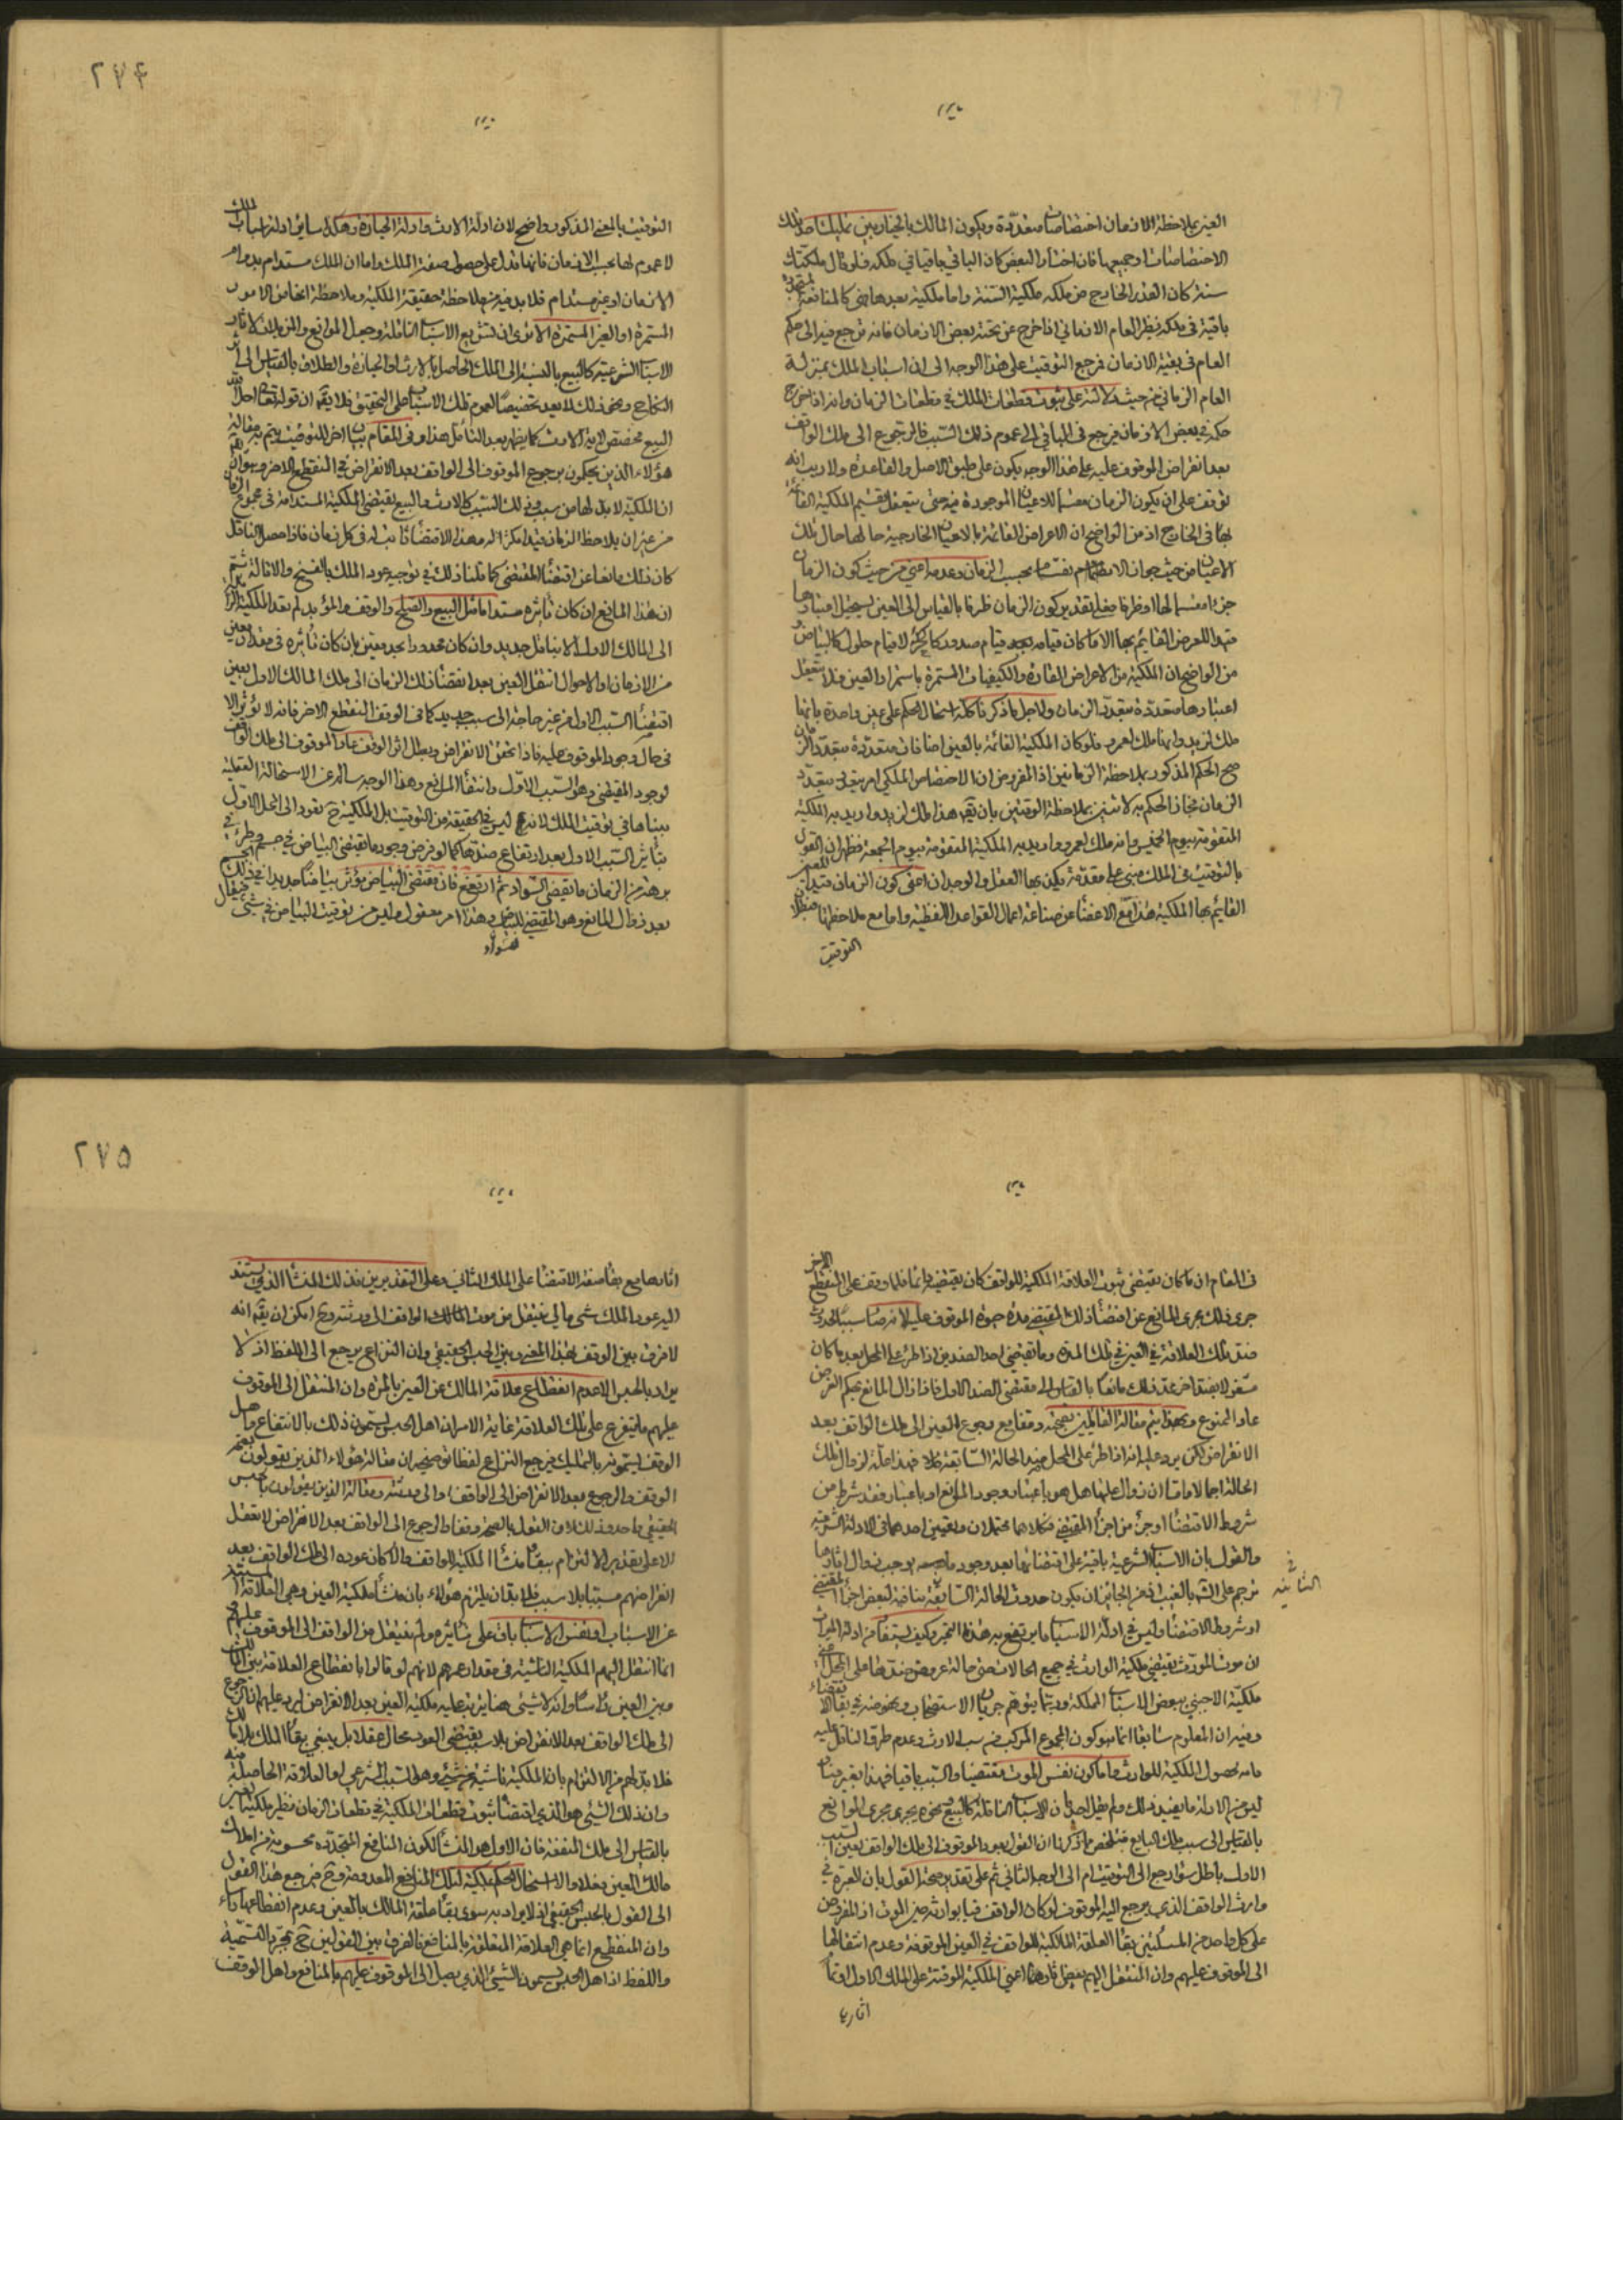 العين بملاحظة الازمان اختصاصات متعددة ويكون المالك بالخيار بين تمليك احد تلك
الاختصاصات او جميعها فان اختار البعض كان الباقي باقيا في ملكه فلو قال ملكتك
سنة كان القدر الخارج من ملكه ملكية السنة واما ملكية بعدها فهي كالمنافع المتجددة
باقية في ملكه نظير العام الازماني اذا خرج عن تحته بعض الازمان فانه يرجع فيه الى حكم
العام في بقية الازمان فمرجع التوقيت على هذا الوجه الى ان اسباب الملك بمنزلة
العام الزماني من حيث دلالته على ثبوت قطعات الملك في قطعات الزمان وانه اذا خرج
حكمه في بعض الازمان فيرجع في الباقي الى عموم ذلك السبب فالرجوع الى ملك الواقف
بعد انقراض الموقوف عليه على هذا الوجه يكون على طبق الاصل والقاعدة ولا ريب انه
توقف على ان يكون الزمان مقسما للاعيان الموجودة فيه حتى يتعقل تقسيم الملكية القائمة
بها في الخارج اذ من الواضح ان الاعراض القائمة بالاعيان الخارجية حالها حال تلك
الاعيان من حيث جواز الانقسام بحسب الزمان وعدمه اعني من حيث كون الزمان
جزءا مقسما لها او ظرفا فعلى تقدير كون الزمان ظرفا بالقياس الى العين يستحيل اعتباره
قيدا للعرض القائم بها الا ما كان قيامه به قيام صدور كالحركة لا قيام حلول كالبياض و
من الواضح ان الملكية من الاعراض القارة والكيفيات المستمرة باستمرار العين فلا يتعقل
اعتبارها متعددة بتعدد الزمان ولاجل ما ذكرنا كله استحال الحكم على عين واحدة بانها
ملك لزيد وانها ملك لعمرو فلو كان الملكية القائمة بالعين اضافات متعددة بتعدد الزمان
صح الحكم المذكور بملاحظة الزمانين اذ المفروض ان الاختصاص الملكي امر يتعدد بتعدد
الزمان فجاز الحكم به لاثنين بملاحظة الوقتين بان يقال هذا ملك لزيد واريد به الملكية
المتقومة بيوم الخميس وانه ملك لعمرو واريد به الملكية المتقومة بيوم الجمعة فظهر ان القول
بالتوقيت في الملك مبني على مقدمة يكذبها العقل والوجدان اعني كون الزمان قيدا للعين
القائم بها الملكية هذا مع الاغضاء عن صناعة اعمال القواعد اللفظية واما مع ملاحظتها فبطلان
التوقيت
٢٧٤
التوقيت بالمعنى المذكور واضح لان ادلة الارث وادلة الحيازة وهكذا سائر ادلة اسباب الملك
لا عموم لها بحسب الازمان فانها تدل على حصول صفة الملك واما ان الملك مستدام بدوام
الازمان او غير مستدام فلا بد فيه من ملاحظة حقيقة الملكية وملاحظة انها من الامور
المستمرة او الغير المستمرة الا ترى ان تشريع الاسباب الناقلة وجعل الموانع والمزيلات لاثار
الاسباب الشرعية كالبيع بالنسبة الى الملك الحاصل بالارث او الحيازة والطلاق بالقياس الى اثر
النكاح ونحو ذلك لا يعد تخصيصا لعموم تلك الاسباب على التحقيق فلا يقال ان قوله تعالى احل الله
البيع مخصص لاية الارث كما يظهر بعد التأمل هذا وفي المقام بيان اخر للتوقيت يتم به مقالة
هؤلاء الذين يحكمون برجوع الموقوف الى الواقف بعد الانقراض في المنقطع الاخر وهو ان يقال
ان الملكية لا بد لها من سبب وذلك السبب كالارث والبيع يقتضي الملكية المستدامة في مجموع الازمان
من غير ان يلاحظ الزمان قيدا مكثرا له وهذا الاقتضاء ثابت له في كل زمان فاذا حصل الناقل
كان ذلك مانعا عن اقتضاء المقتضي كما قلنا ذلك في توجيه عود الملك بالفسخ والاقالة ثم
ان هذا المانع ان كان تأثيره مستداما مثل البيع والصلح والوقف المؤبد لم تعد الملكية الزائلة
الى المالك الاول الا بناقل جديد وان كان محدودا بحد معين بان كان تأثيره في مقدار معين
من الازمان او الاحوال انتقل العين بعد انقضاء ذلك الزمان الى ملك المالك الاول بعين
اقتضاء السبب الاول من غير حاجة الى سبب جديد كما في الوقف المنقطع الاخر فانه لا يؤثر الا
في حال وجود الموقوف عليه فاذا تحقق الانقراض وبطل اثر الوقف عاد الموقوف الى ملك الواقف
لوجود المقتضي وهو السبب الاول وانتفاء المانع وهذا الوجه سالم عن الاستحالة العقلية
بيناها في توقيت الملك لانه ليس في الحقيقة من التوقيت بل الملكية ح يعود الى المحل الاول
بتأثير السبب الاول بعد ارتفاع ضدها كما لو فرض وجود ما يقتضي البياض في جسم وطرء في
برهة من الزمان ما يقتضي السواد ثم ارتفع فان مقتضي البياض يؤثر بياضا جديدا في ذلك الجسم
بعد زوال المانع وهو المقتضي للسواد وهذا امر معقول وليس من توقيت البياض في شيء فيقال
في المقام ان ما كان يقتضي ثبوت العلاقة الملكية للواقف كان يقتضيه دائما فلما وقف على المنقطع الاخر
جرى ذلك مجرى المانع عن اقتضاء ذلك المقتضي مدة حيوة الموقوف عليه لانه صار سببا لحدوث
ضد تلك العلاقة في العين في تلك المدة وما يقتضي احد الضدين اذا طرء على المحل بعد ما كان
مشغولا بضد اخر عد ذلك مانعا بالقياس الى مقتضي الضد الاول فاذا زال المانع بحكم الفرض
عاد الممنوع وبهذا يتم مقالة القائلين بصحته وقفا مع رجوع العين الى ملك الواقف بعد
الانقراض لكن يرد عليه انه اذا طرء على المحل ضد الحالة السابقة فلا بد فيه من علة لزوال تلك
الحالة اجمالا واما ان زوال علتها هل هو باعتبار وجود المانع او باعتبار فقد شرط من
شروط الاقتضاء او جزء من اجزاء المقتضي فكلاهما محتملان وتعيين احدهما في الادلة الشرعية
والقول بان الاسباب الشرعية باقية على اقتضائها بعد وجود ما يوجب زوال اثارها
رجم على الشيء بالغيب اذ من الجائز ان يكون حدوث الحالة الثانية منافيا لبعض اجزاء المقتضي
او شروط الاقتضاء وليس في ادلة الاسباب ما يرتفع به هذا التحير وكيف يستفاد من ادلة الميراث
ان موت المورث يقتضي ملكية الوارث في جميع الحالات حتى حالة عروض ضدها على المحل اعني
ملكية الاجنبي ببعض الاسباب المملكة وربما يتوهم جريان الاستصحاب ونحوه في بقاء الاقتضاء
وفيه ان المعلوم سابقا انما هو كون المجموع المركب من سبب الارث وعدم طرو الناقل عليه
مناط حصول الملكية للوارث واما كون نفس الموت مقتضيا والسبب باقيا فهذا بغير بيان
ليس من الادلة ما يفيد ذلك ولم يقل احد بان الاسباب الناقلة كالبيع ونحوه يجري مجرى الموانع
بالقياس الى سبب ملك البايع فتلخص مما ذكرنا ان القول بعود الموقوف الى ملك الواقف بعين السبب
الاول باطل سواء رجع الى التوقيت ام الى الوجه الثاني ثم على تقدير صحته القول بان العبرة في
وارث الواقف الذي يرجع اليه الموقوف لو كان الواقف ميتا بوارثه حين الموت اذ المفروض
على كل واحد من المسلكين بقاء العلقة المالكية للواقف في العين الموقوفة وعدم انتقالها
الى الموقوف عليهم وان المنتقل اليهم بعض اثارها اعني الملكية الموقتة على المسلك الاول او تمام
اثارها
الثانية
٢٧٥
اثارها مع بقاء صفة الاقتضاء على المسلك الثاني وعلى التقديرين فذلك المنشأ الذي يستند
اليه عود الملك شيء مالي ينتقل من موت المالك الواقف الى ورثته وح امكن ان يقال انه
لا فرق بين الوقف بهذا المعنى وبين الحبس الحقيقي وان النزاع يرجع الى اللفظ اذ لا
يراد بالحبس الا عدم انقطاع علاقة المالك عن العين بالمرة وان المنتقل الى الموقوف
عليهم ما يتفرع على تلك العلاقة غاية الامر ان اهل الحبس يسمون ذلك بالانتفاع واهل
الوقف يسمونه بالتمليك فيرجع النزاع لفظيا توضيحه ان مقالة هؤلاء الذين يقولون بصحة
الوقف والرجوع بعد الانقراض الى الواقف او الى ورثته ومقالة الذين يقولون بالحبس
الحقيقي واحدة وذلك لان القول بالصحة وقفا والرجوع الى الواقف بعد الانقراض لا يتعقل
الا على تقدير الالتزام ببقاء منشأ الملكية للواقف والا لكان عوده الى ملك الواقف بعد
انقراضهم مسببا بلا سبب فلا بد ان يلتزم هؤلاء بان منشأ ملكية العين وهي العلاقة المستفيد
عن الاسباب او نفس الاسباب باق على تأثيره ولم ينتقل من الواقف الى الموقوف عليهم و
انما انتقل اليهم الملكية الناشئة في مقدار عمرهم لانهم لو قالوا بانقطاع العلاقة بين المالك
وبين العين رأسا وانه لا شيء هنا يترتب عليه ملكية العين بعد الانقراض ليرد عليهم ان الرجوع
الى ملك الواقف بعد الانقراض بلا سبب يقتضي العود محال عقلا بل ينبغي بقاء الملك بلا مالك
فلا بد لهم من الالتزام بان الملكية ناشية عن شيء وهو السبب الشرعي او العلاقة الحاصلة منه
وان ذلك الشيء هو الذي اقتضى ثبوت قطعات الملكية في قطعات الزمان نظير ملكية العين
بالقياس الى ملك المنفعة فان الاول هو المنشأ لكون المنافع المتجددة محسوبة من املاك
مالك العين فعلا والا استحال الحكم بملكية تلك المنافع المعدومة وح فمرجع هذا القول
الى القول بالحبس الحقيقي اذ لا يراد به سوى بقاء علقة المالك بالعين وعدم انقطاعها رأسا
وان المنقطع انما هي العلاقة المتعلقة بالمنافع فالفرق بين القولين ح بمجرد التسمية
واللفظ اذ اهل الحبس يسمون الشيء الذي يصل الى الموقوف عليهم بالمنافع واهل الوقف